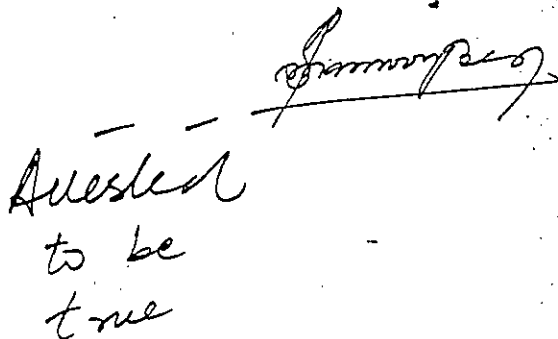 Attested
to be
true